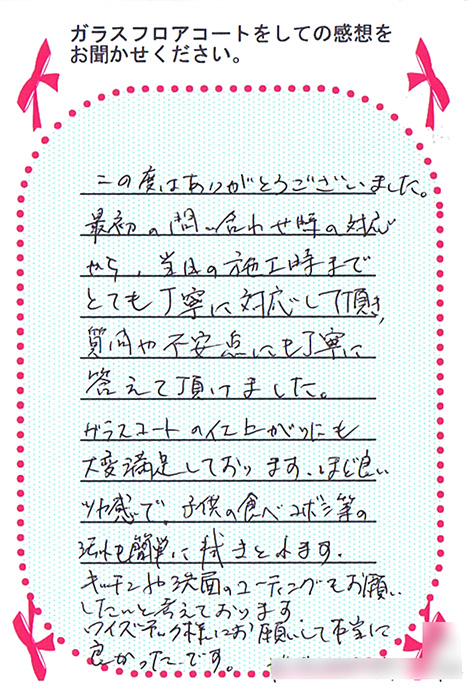 ガラスフロアコートをしての感想を
お聞かせください。
この度はありがとうございました。
最初の問い合わせ時の対応
から、当日の施工時まで
とても丁寧に対応して頂き、
質問や不安点にも丁寧に
答えて頂けました。
ガラスコートの仕上がりにも
大変満足しております。ほど良い
ツヤ感で、子供の食べコボシ等の
汚れも簡単に拭きとれます。
キッチンや洗面のコーティングもお願い
したいと考えております。
ワイズテック様にお願いして本当に
良かったです。